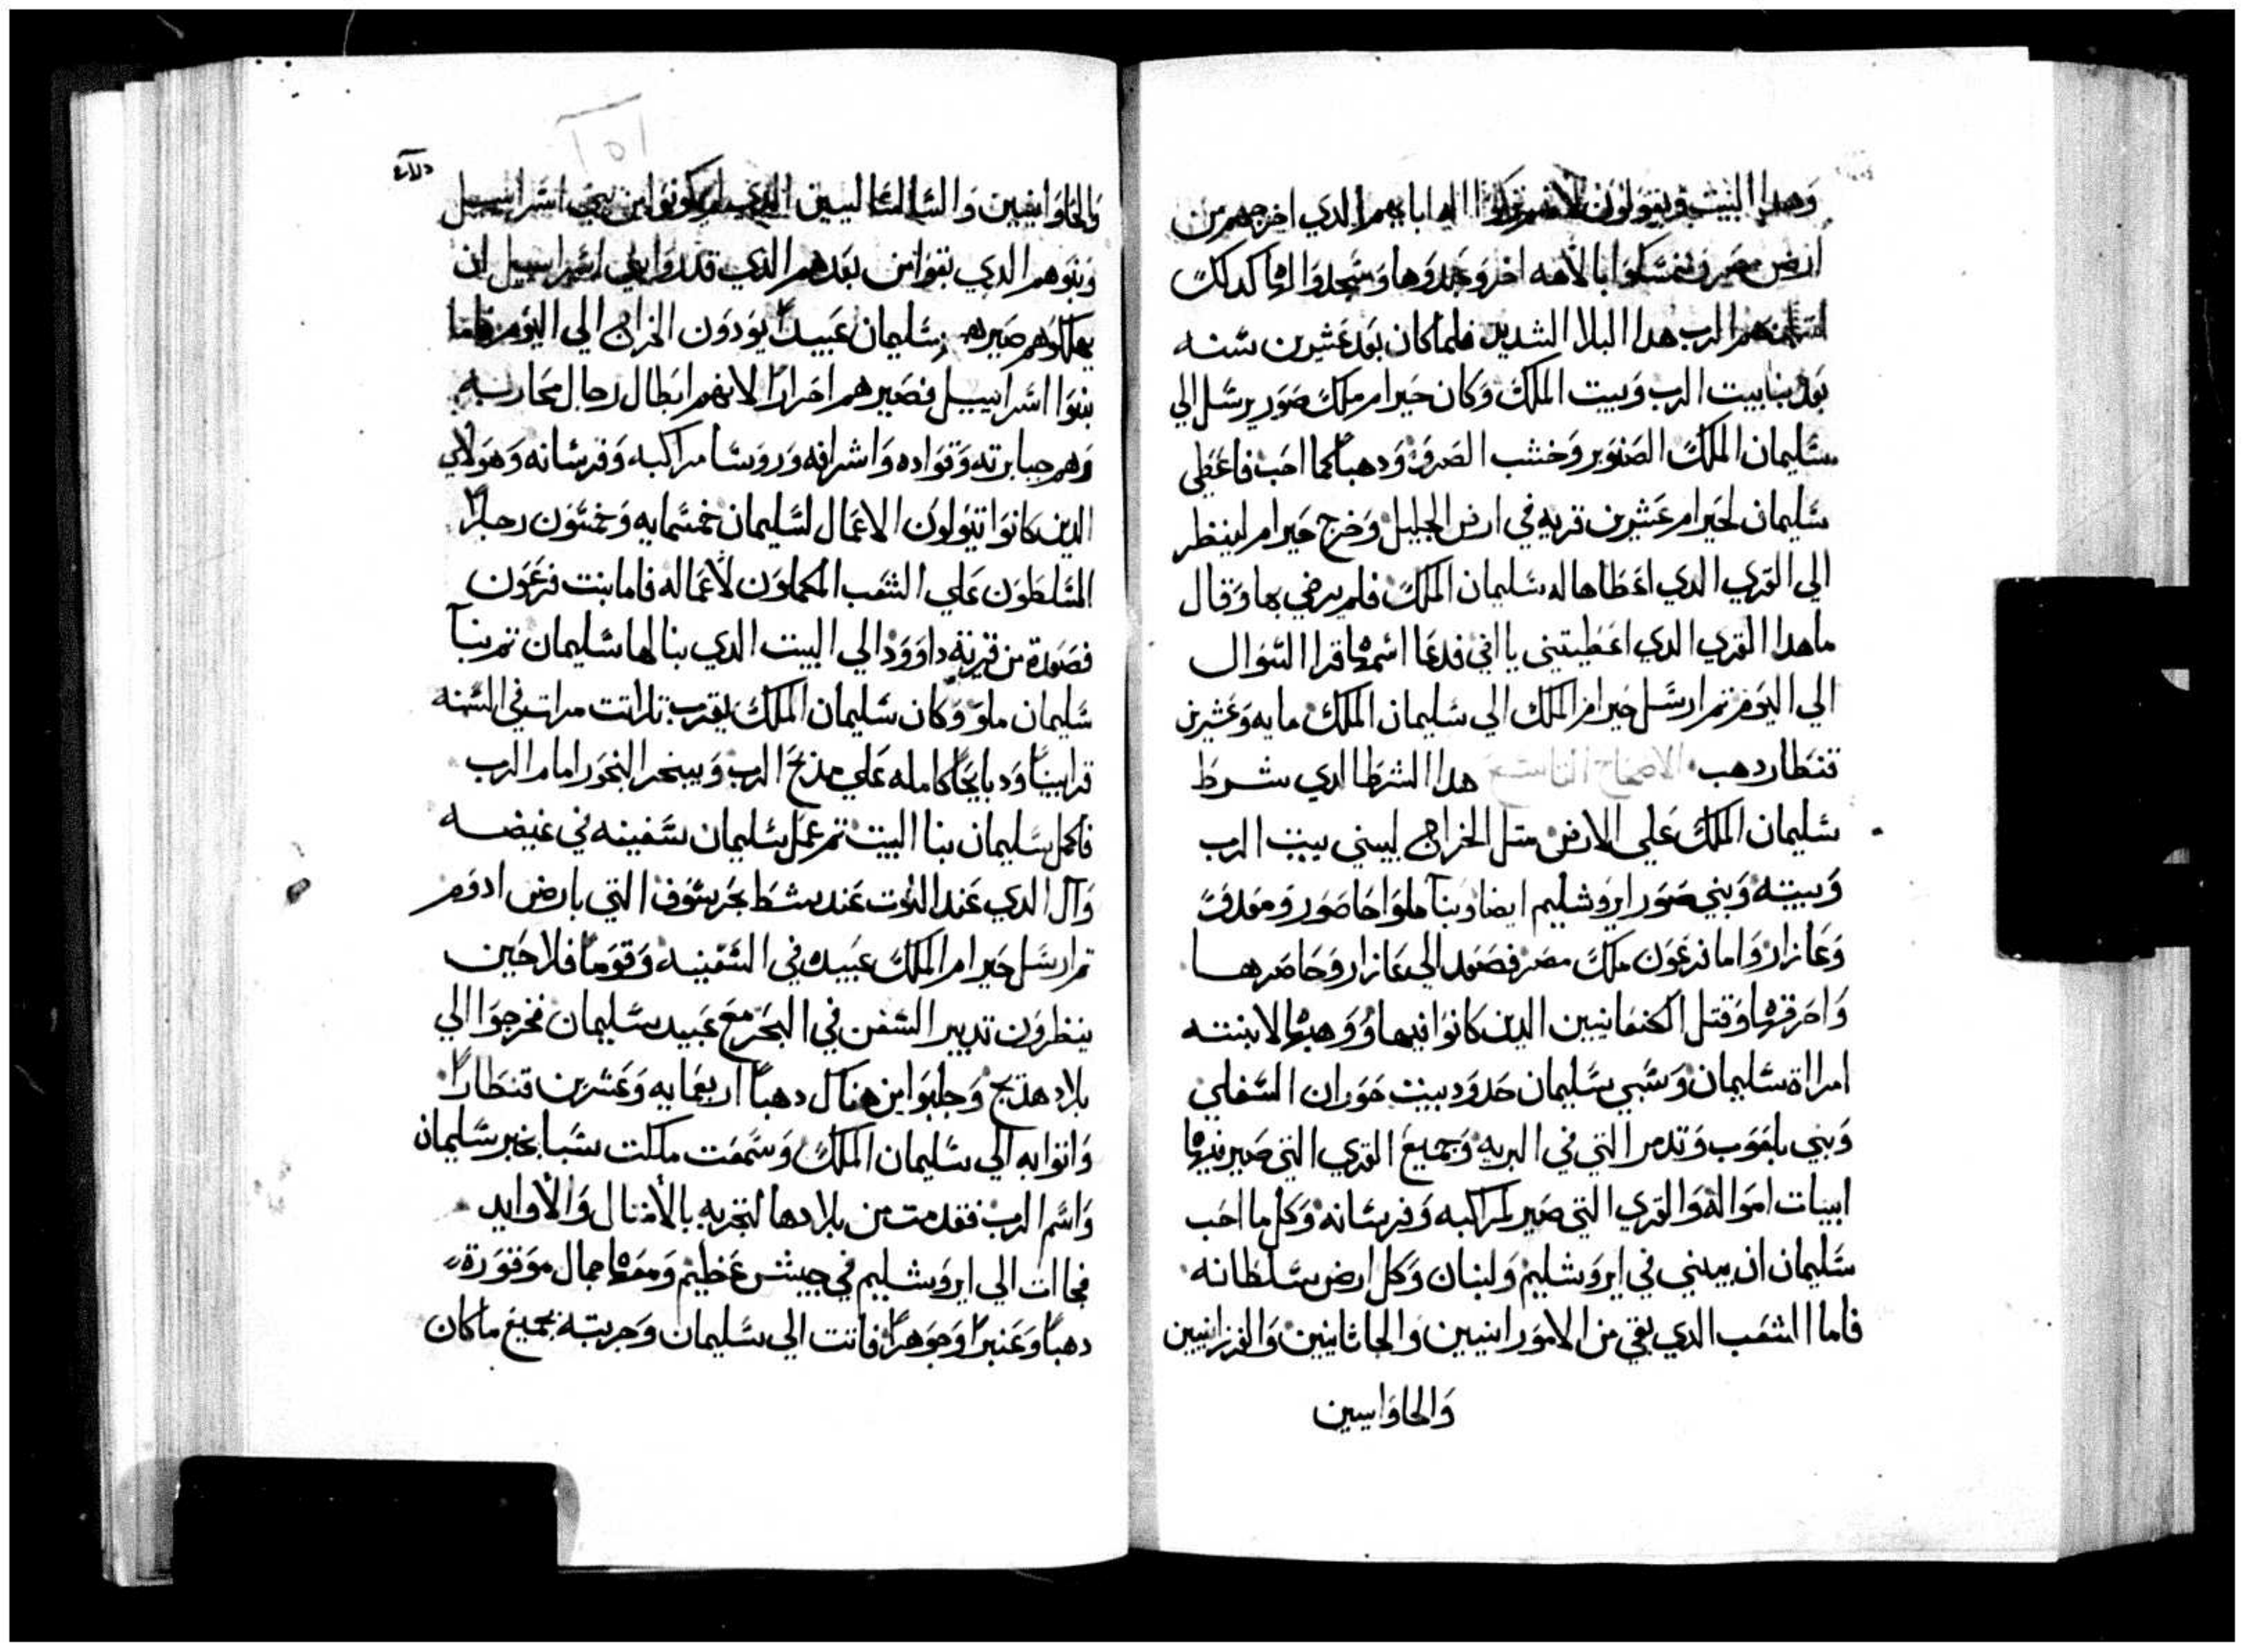 وهدا البيت فيقولون لانهم تركوا الاه ابايهم الدي اخرجهم من
ارض مصر وتمسكوا بالاهه اخر وعبدوها وسجدوا لها كدلك
الرب هدا البلا الشديد فلما كان بعد عشرين سنه
بعد بنا بيت الرب وبيت الملك وكان حيرام ملك صور يرسل الي
سليمان الملك الصنوبر وخشب الصرو ودهباً كما احب فاعطي
سليمان لحيرام عشرين قريه في ارض الجليل وخرج حيرام لينظر
الي القري الدي اعطاها له سليمان الملك فلم يرضي بها وقال
ماهدا القري الدي اعطيتيني يا اخي فدعا اسمها قرا السوال
الي اليوم تم ارسل حيرام الملك الي سليمان الملك مايه وعشرين
قنطار دهب الاصحاح التاسع هدا الشرط الدي شرط
سليمان الملك علي الارض متل الخراج ليبني بيت الرب
وبيته وبني صور ايروشليم ايضا وبنا ملوا حاصور ومعدو
وعازار واما فرعون ملك مصر فصعد الي عازار وحاصرها
واحرقها وقتل الكنعانيين الدين كانوا فيها ووهبها لابنته
امراة سليمان وسبي سليمان حدود بيت حوران السفلي
وبني بلعوب وتدمر التي في البريه وجميع القري التي صير فيها
ابيات امواله والقري التي صير لمراكبه وفرسانه وكل ما احب
سليمان ان يبني في ايروشليم ولبنان وكل ارض سلطانه
فاما الشعب الدي بقي من الامورانيين والحاثانيين والفرزانيين
والحاوانيين
والحاوانيين الدي لم يكونوا من بني اسراييل
وبنوهم الدي بقوا من بعدهم الدي قدروا بني اسراييل ان
يهلكوهم صيرهم سليمان عبيداً يودون الخراج الي اليوم فاما
بنوا اسراييل فصيرهم احراراً لانهم ابطال رجال محاربه
وهم جبابرته وقواده واشرافه وروسا مراكبه وفرسانه وهولاي
الدين كانوا يتولون الاعمال لسليمان خمسمايه وخمسون رجلاً
المسلطون علي الشعب المكملون لاعماله فاما بنت فرعون
فصعدة من قرية داوود الي البيت الدي بنا لها سليمان تم بنآ
سليمان ملو وكان سليمان الملك يقرب تلاتت مرات في السنه
قرابيناً ودبايحاً كامله علي مدبح الرب ويبخر البخور امام الرب
فاكمل سليمان بنا البيت تم عمل سليمان سفينه في غيضه
وآل الدي عند التوت عند شط بحر سوف التي بارض ادوم
تم ارسل حيرام الملك عبيده في السفينه وقوماً فلاحين
ينظرون تدبير السفن في البحر مع عبيد سليمان فخرجوا الي
بلاد هديج وجلبوا من هناك دهباً اربعمايه وعشرين قنطاراً
واتوا به الي سليمان الملك وسمعت ملكت سبا بخبر سليمان
واسم الرب فقدمت من بلادها لتجربه بالامتال والاوابد
فجاات الي ايروشليم في جيش عظيم ومعها جمال موقورة
دهباً وعنبراً وجوهراً فاتت الي سليمان وجربته بجميع ماكان